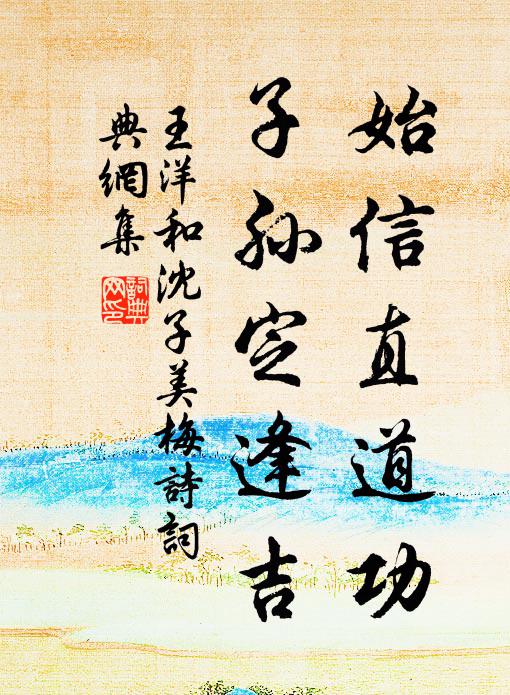 始信直道功
子孫定逢吉
王洋和沈子美梅詩詞
典網集
詞典
网印